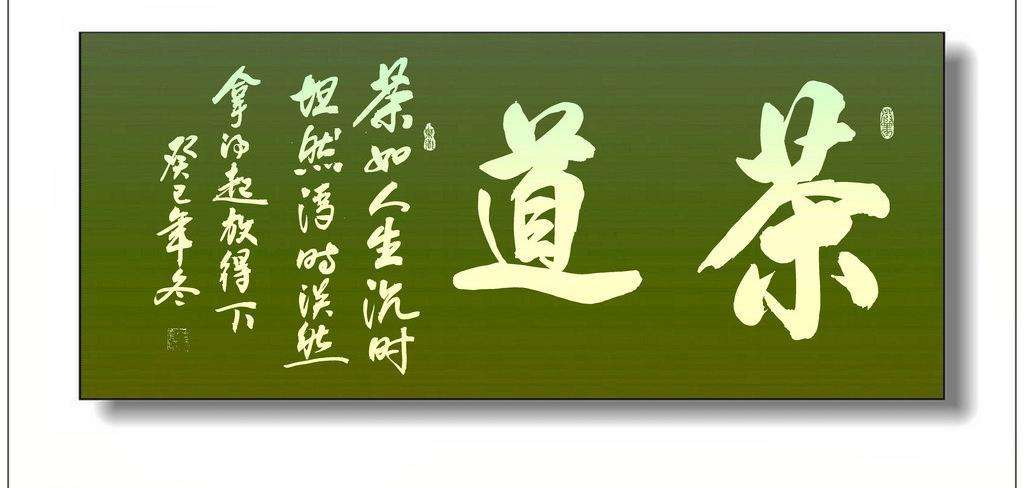 茶道
茶如人生沉时
坦然浮时淡然
拿得起放得下
癸巳年冬